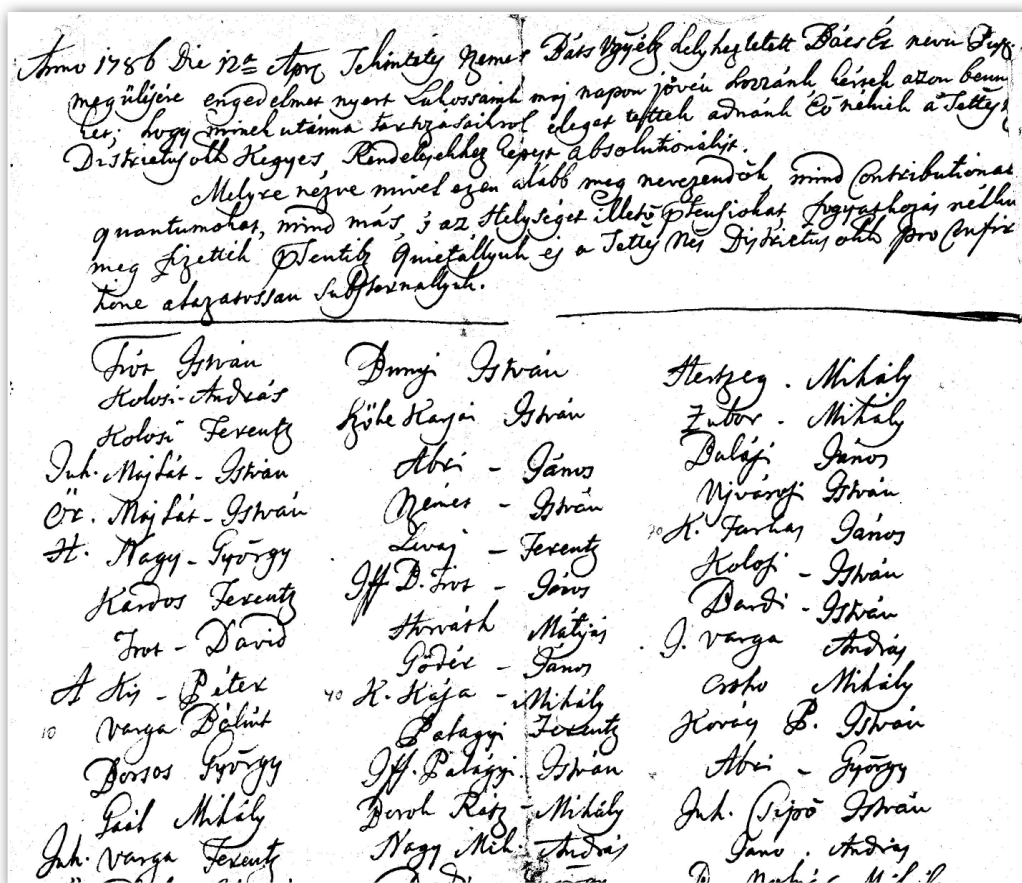 Anno 1786 Die 12a Apr. Tekintetes Nemes Báts Vgyébe helyheztetett Bács Ér nevü
meg ülésére engedelmet nyert Lakossaink maj napon jövén hozzánk kérnek azon
hogy minek utánna tartozásaikrol eleget tettek adnánk Eö nekik a Tettes
Districtus Kegyes Rendeléséhez képest absolutionálist.
Melyre nézve mivel ezen alább meg nevezendök mind Contributionat
quantumokat, mind más, s az Helységet illetö fogyatkozás nélkü
meg fizették quietállyuk es a Tettes Nes Districtus pro
tione alázatossan substernallyuk.
Trot István
Kolosi András
Kolosi Ferentz
Juh. Majsát - István
Ör. Majsát - István
H. Nagy - György
Kardos Ferentz
Trot - David
A Kis - Péter
10 Varga Bálint
Borsos György
Gaál Mihály
Juh. Varga Ferentz
Bunyi István
Köhe Karjai István
Abri - János
Német - István
Livaj - Ferentz
Iff B. Trot - János
Horváth Mátyás
Gödér - János
40 K. Kája - Mihály
Palagyi Ferentz
Iff. Palágyi István
Doroh Rátz - Mihály
Nagy Mih. András
Hertzeg . Mihály
Zubor - Mihály
Balási János
Ujvárosi István
70 K. Farkas János
Kolosi - István
Bardi - István
J. Varga András
Csoho Mihály
Kováts P. István
Abri - György
Juh. Csipö István
Jano . András